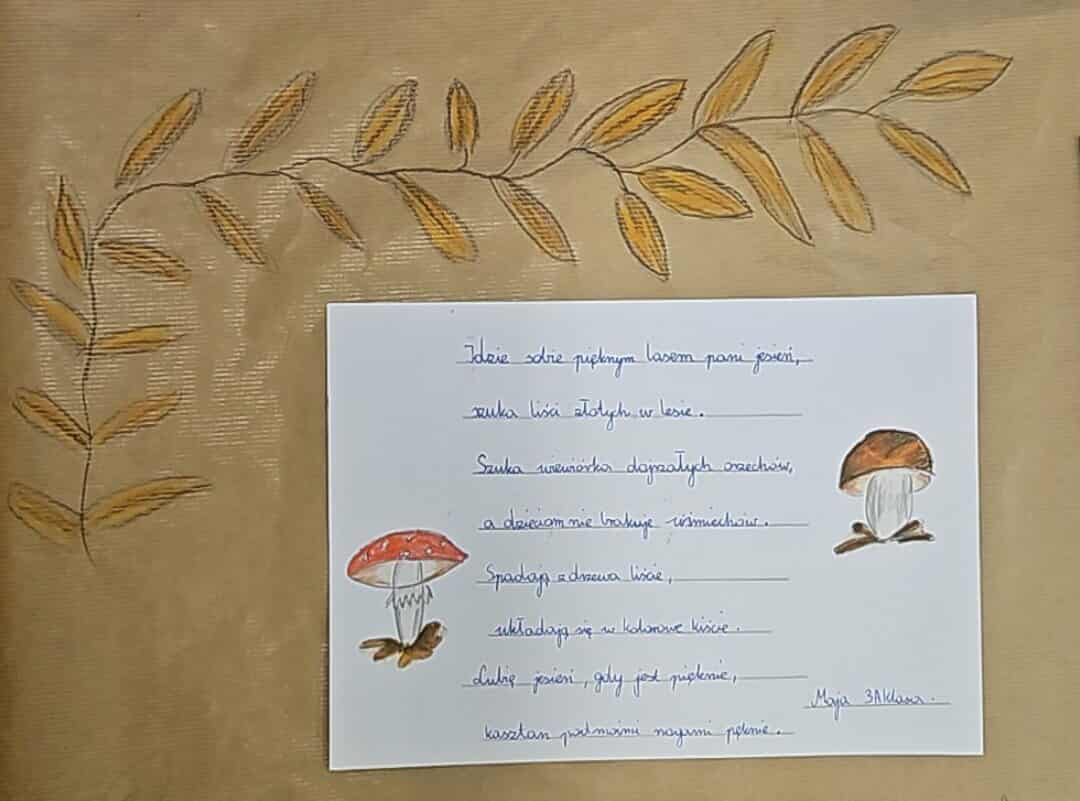 Idzie sobie pięknym lasem pani jesień,
szuka liści złotych w lesie.
Szuka wiewiórka dojrzałych orzechów,
a dzieciom nie brakuje uśmiechów.
Spadają z drzewa liście,
układają się w kolorowe kiście.
Lubię jesień, gdy jest pięknie,
kasztan pod moimi nogami pęknie.
Maja 3A klasa.